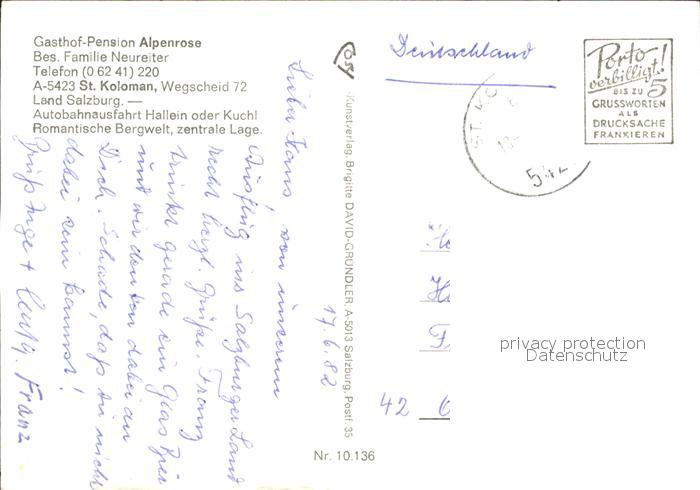 Gasthof-Pension Alpenrose
Bes. Familie Neureiter
Telefon (0 62 41) 220
A-5423 St. Koloman, Wegscheid 72
Land Salzburg. —
Autobahnausfahrt Hallein oder Kuchl
Romantische Bergwelt, zentrale Lage.
17.6.82
Lieber Hans, von unserem
Ausflug ins Salzburger Land
recht herzl. Grüße. Franz
trinkt gerade ein Glas Bier
und wir denken dabei an
Dich. Schade, daß du nicht
dabei sein kannst!
Grüß Inge +
Franz
Kunstverlag, Brigitte DAVID-GRÜNDLER A-5013 Salzburg, Postf. 35
Nr. 10.136
Deutschland
Porto
verbilligt!
BIS ZU 5
GRUSSWORTEN
ALS
DRUCKSACHE
FRANKIEREN
ST. KO
H
F
42
privacy protection
Datenschutz